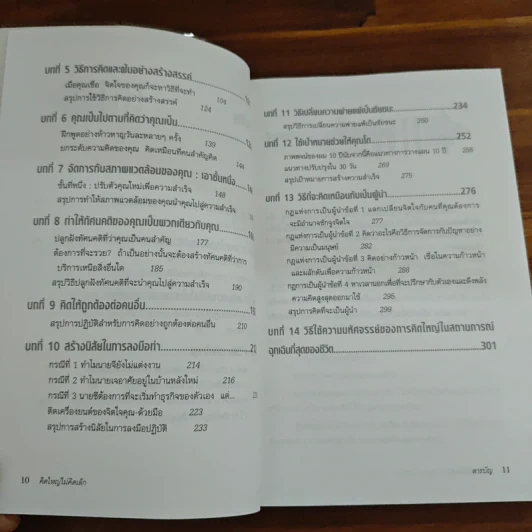 บทที่ 5 วิธีการคิดและฝันอย่างสร้างสรรค์
เมื่อคุณเชื่อ จิตใจของคุณก็จะหาวิธีที่จะทำ 104
สรุปการใช้วิธีการคิดอย่างสร้างสรรค์ 124
บทที่ 6 คุณเป็นไปตามที่คิดว่าคุณเป็น
ฝึกพูดอย่างห้าวหาญวันละหลายๆ ครั้ง 139
ยกระดับความคิดของคุณ คิดเหมือนที่คนสำคัญคิด
บทที่ 7 จัดการกับสภาพแวดล้อมของคุณ : เอาชั้นหนึ่ง
ขั้นที่หนึ่ง : ปรับตัวคุณใหม่เพื่อความสำเร็จ 148
สรุปการทำให้สภาพแวดล้อมของคุณนำคุณไปสู่ความสำเร็จ
บทที่ 8 ทำให้ทัศนคติของคุณเป็นพวกเดียวกับคุณ
ปลูกฝังทัศนคติที่ว่าคุณเป็นคนสำคัญ 177
ต้องการที่จะรวย? ถ้าเป็นอย่างนั้นจะต้องสร้างทัศนคติที่ว่าการ
บริการเหนือสิ่งอื่นใด 185
สรุปวิธีปลูกฝังทัศนคติที่จะนำคุณไปสู่ความสำเร็จ 190
บทที่ 9 คิดให้ถูกต้องต่อคนอื่น
สรุปการปฏิบัติสำหรับการคิดอย่างถูกต้องต่อคนอื่น 210
บทที่ 10 สร้างนิสัยในการลงมือทำ
กรณีที่ 1 ทำไมนายจียังไม่แต่งงาน 214
กรณีที่ 2 ทำไมนายเจอาศัยอยู่ในบ้านหลังใหม่ 216
กรณีที่ 3 นายซีต้องการที่จะเริ่มทำธุรกิจของตัวเอง แต่...
ติดเครื่องยนต์ของจิตใจคุณ-ด้วยมือ 223
สรุปการสร้างนิสัยในการลงมือปฏิบัติ 233
10 คิดใหญ่ไม่คิดเล็ก
บทที่ 11 วิธีเปลี่ยนความพ่ายแพ้เป็นชัยชนะ 234
สรุปวิธีการเปลี่ยนความพ่ายแพ้เป็นชัยชนะ 250
บทที่ 12 ใช้เป้าหมายช่วยให้คุณโต 252
ภาพพจน์ของผม 10 ปีนับจากนี้คือแนวทางการวางแผน 10 ปี
แนวทางปรับปรุงใน 30 วัน 269
สรุปเป้าหมายการสร้างความสำเร็จ 275
บทที่ 13 วิธีที่จะคิดเหมือนกับเป็นผู้นำ 276
กฎแห่งการเป็นผู้นำข้อที่ 1 แลกเปลี่ยนจิตใจกับคนที่คุณต้องการ
จะมีอำนาจชักจูงจิตใจ 277
กฎแห่งการเป็นผู้นำข้อที่ 2 คิดว่าอะไรคือวิธีการจัดการกับปัญหาอย่าง
มีความเป็นมนุษย์ 282
กฎแห่งการเป็นผู้นำข้อที่ 3 คิดอย่างก้าวหน้า เชื่อในความก้าวหน้า
และผลักดันเพื่อความก้าวหน้า 288
กฎการเป็นผู้นำข้อที่ 4 หาเวลานอกเพื่อที่จะปรึกษากับตัวเองและดึงพลัง
ความคิดสูงสุดออกมาใช้ 295
สรุปการคิดที่จะเป็นผู้นำ 299
บทที่ 14 วิธีใช้ความมหัศจรรย์ของการคิดใหญ่ในสถานการณ์
ฉุกเฉินที่สุดของชีวิต 301
สารบัญ 11